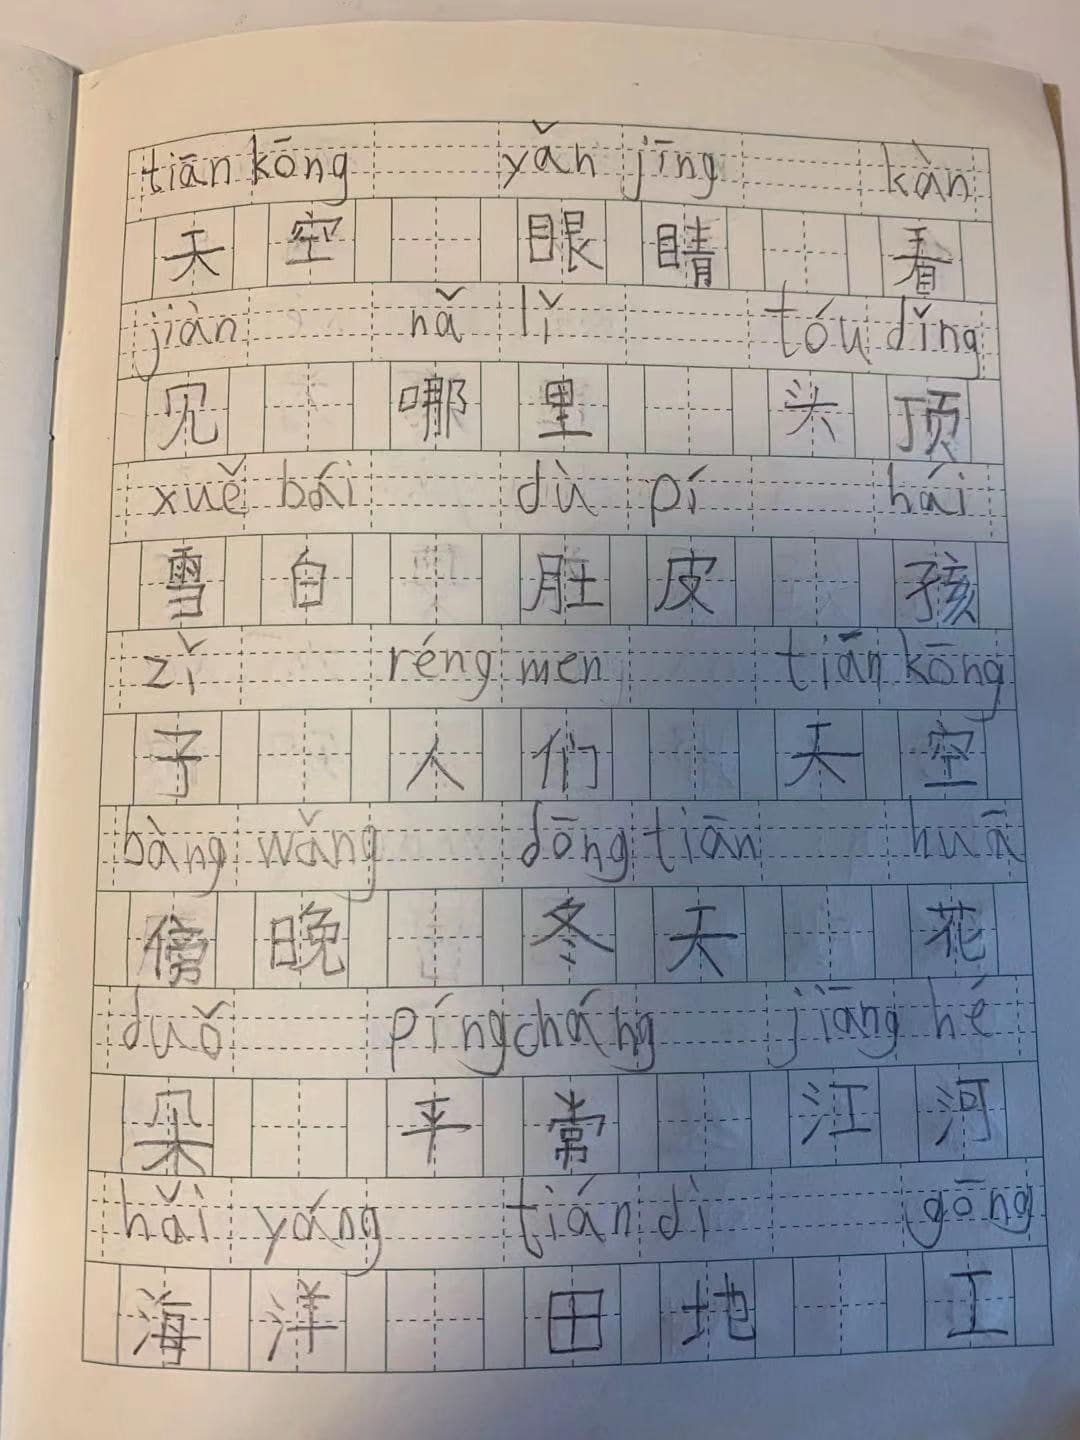 tiān kōng yǎn jīng kàn
天空 眼睛 看
jiàn nǎ lǐ tóu dǐng
见 哪里 头顶
xuě bái dù pí hái
雪白 肚皮 孩
zǐ réng men tiān kōng
子 人们 天空
bàng wǎng dōng tiān huā
傍晚 冬天 花
duǒ píng cháng jiāng hé
朵 平常 江河
hǎi yáng tián dì gōng
海洋 田地 工